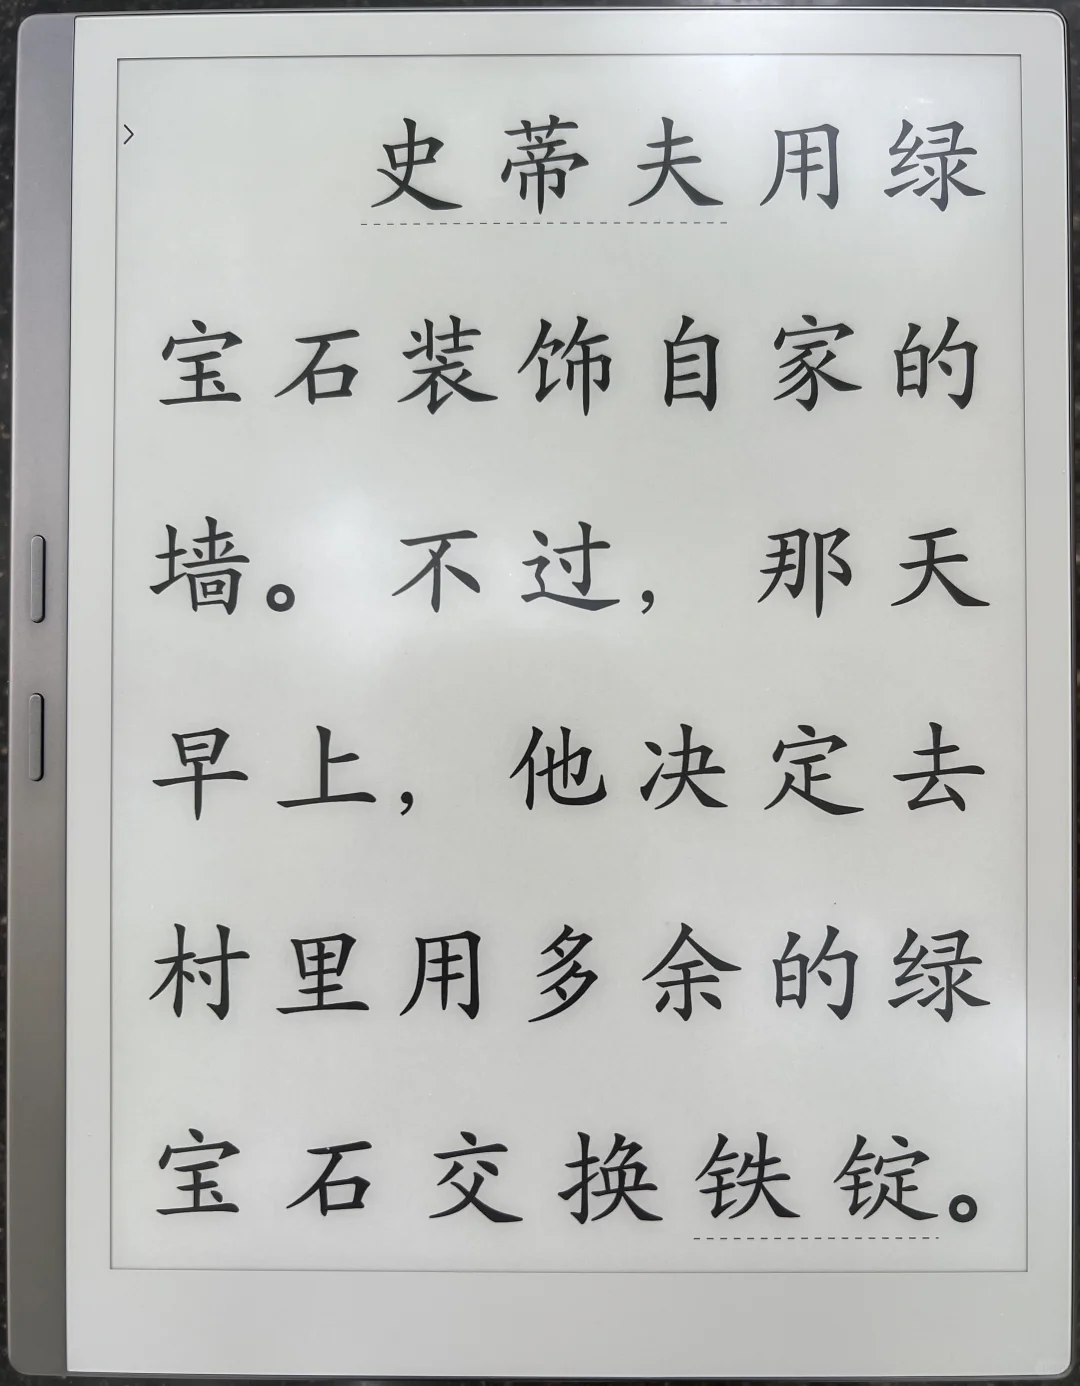 史蒂夫用绿
宝石装饰自家的
墙。不过，那天
早上，他决定去
村里用多余的绿
宝石交换铁锭。